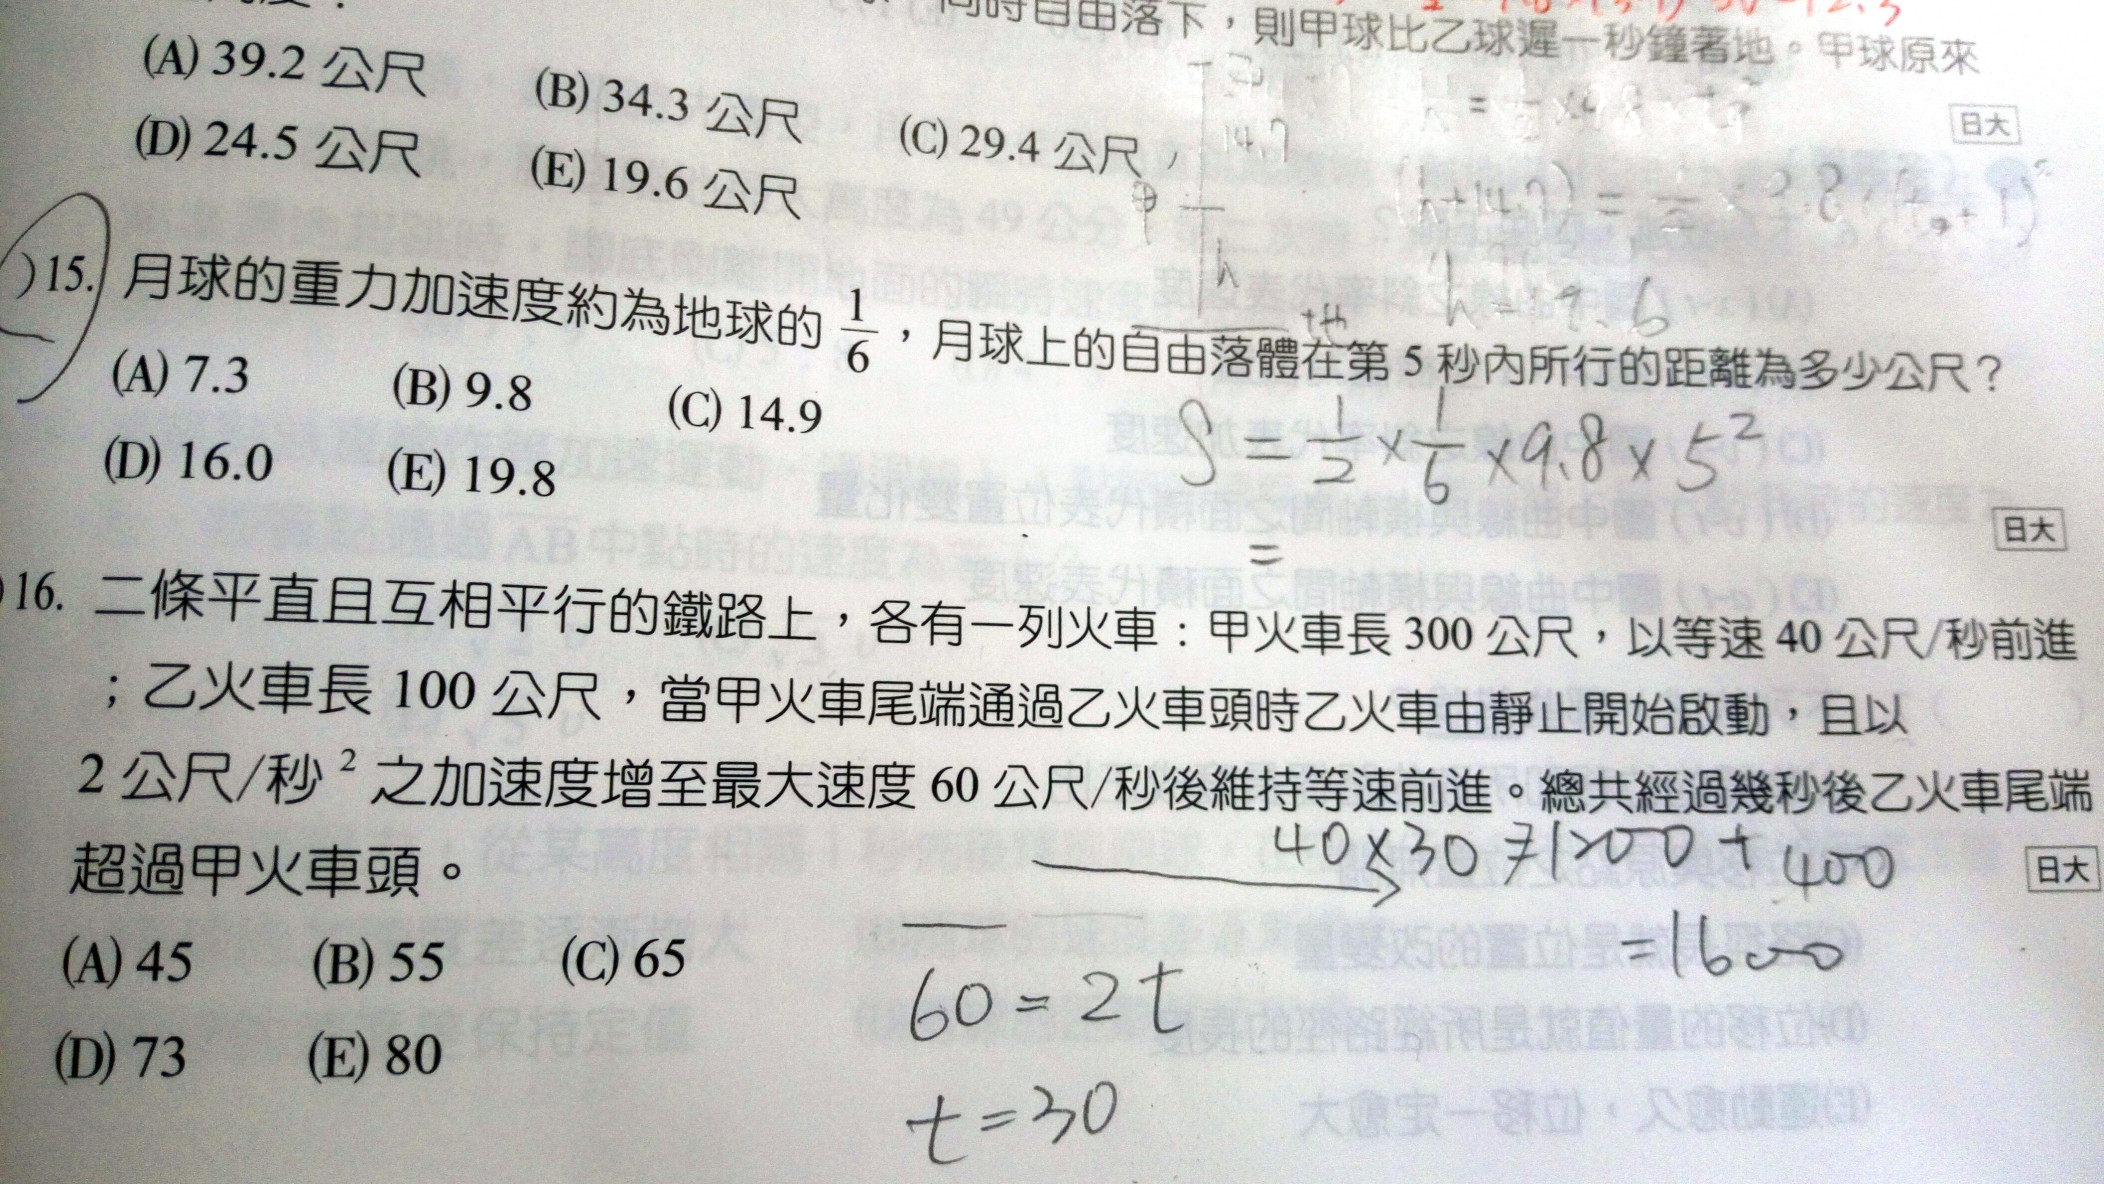 同時自由落下，則甲球比乙球遲一秒鐘著地。甲球原來
日大
(A) 39.2 公尺 (B) 34.3 公尺 (C) 29.4 公尺
(D) 24.5 公尺 (E) 19.6 公尺
14.7
甲
h
(h+14.7) =
h=19.6
)15. 月球的重力加速度約為地球的 1/6，月球上的自由落體在第 5 秒內所行的距離為多少公尺？
(A) 7.3 (B) 9.8 (C) 14.9
(D) 16.0 (E) 19.8
S = 1/2 × 1/6 × 9.8 × 5²
=
日大
)16. 二條平直且互相平行的鐵路上，各有一列火車：甲火車長 300 公尺，以等速 40 公尺/秒前進
；乙火車長 100 公尺，當甲火車尾端通過乙火車頭時乙火車由靜止開始啟動，且以
2 公尺/秒² 之加速度增至最大速度 60 公尺/秒後維持等速前進。總共經過幾秒後乙火車尾端
超過甲火車頭。
日大
40×30 = 1200 + 400
=1600
(A) 45 (B) 55 (C) 65
(D) 73 (E) 80
60 = 2t
t = 30